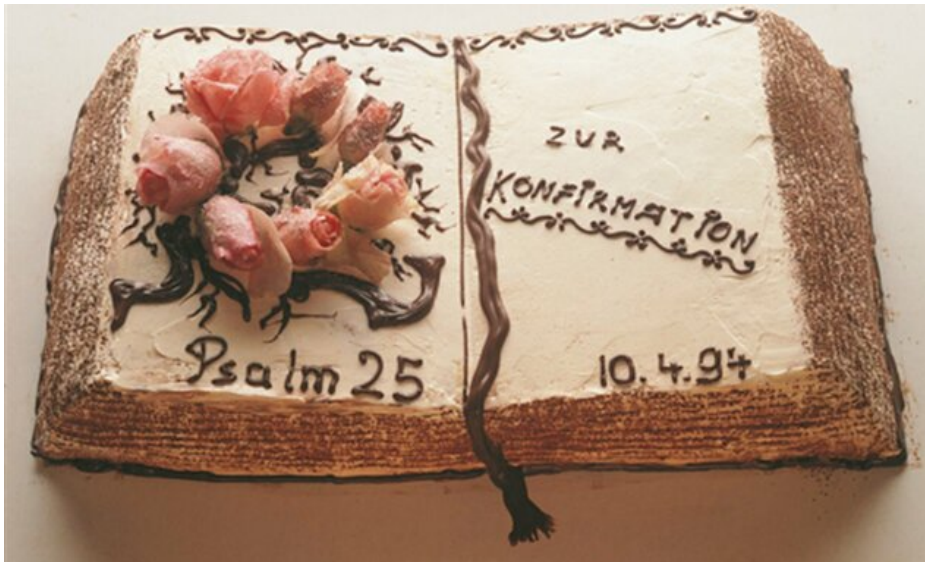 Psalm 25
ZUR
KONFIRMATION
10.4.94